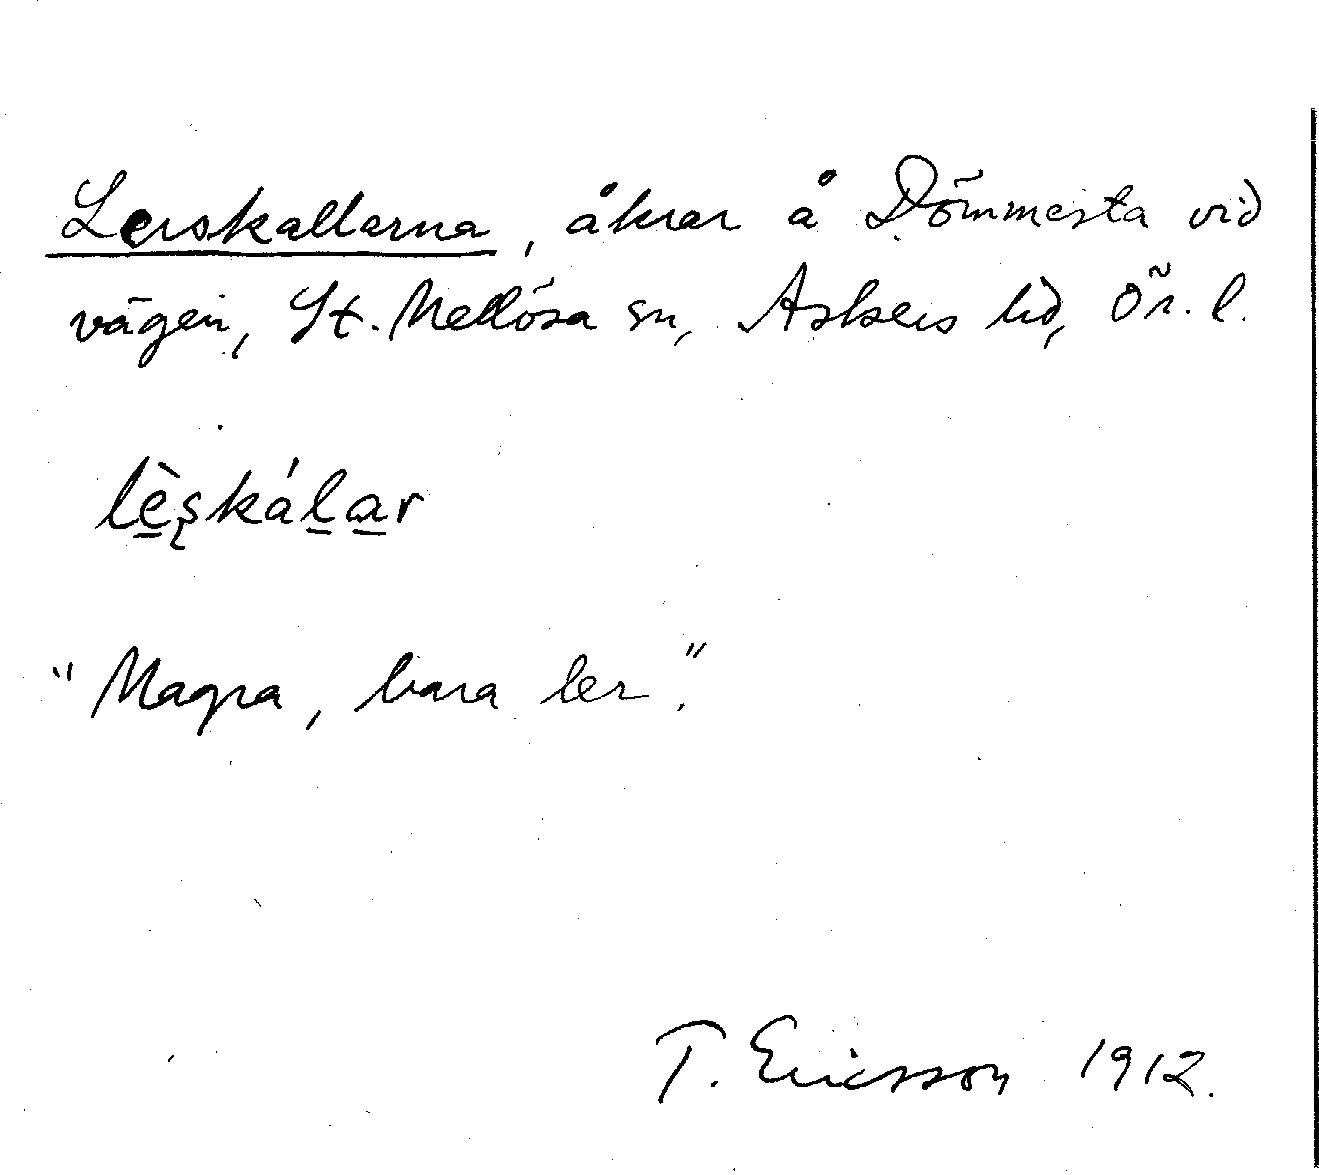 Lerskallarna, åkrar å Dömmesta vid
vägen, St. Mellösa sn, Askers hd, Ör. l.
lè̱ʂkáḻa̱r
"Magra, bara ler."
T. Ericsson 1912.